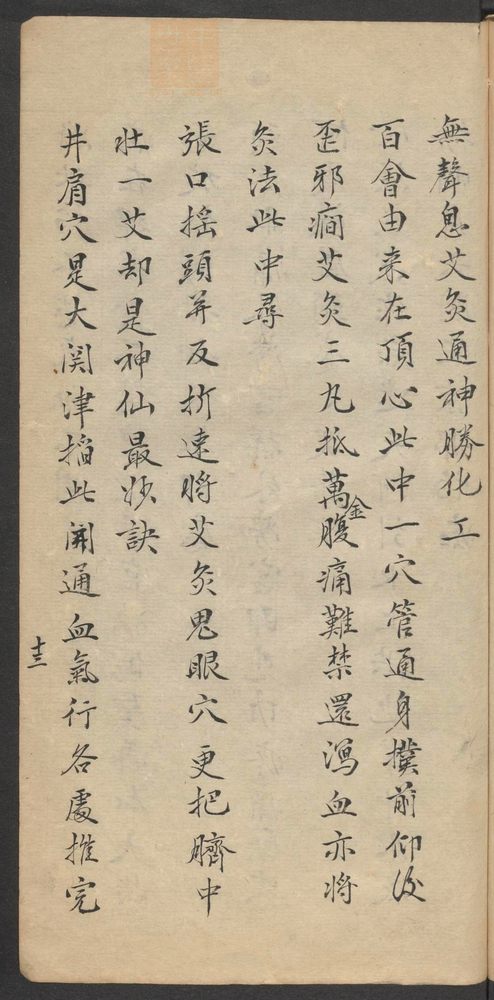 無聲息艾灸通神勝化工
百會由来在頂心此中一穴管通身撲前仰後
歪邪癎艾灸三丸抵萬金腹痛難禁還瀉血亦将
灸法此中尋
張口搖頭并反折速将艾灸鬼眼穴更把臍中
壮一艾却是神仙最妙訣
井肩穴是大関津掐此開通血氣行各處推完
十三